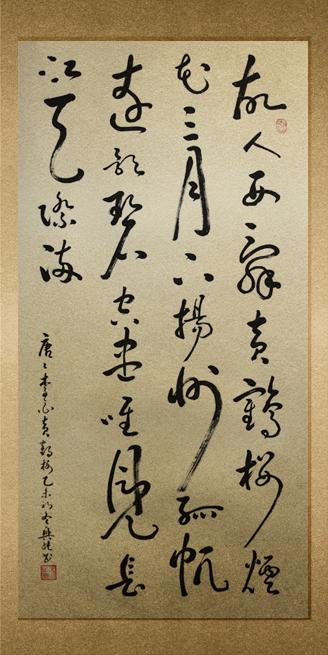 故人西辭黃鶴樓煙
花三月下揚州孤帆
遠影碧空盡唯見長
江天際流
唐李白黃鶴樓乙未